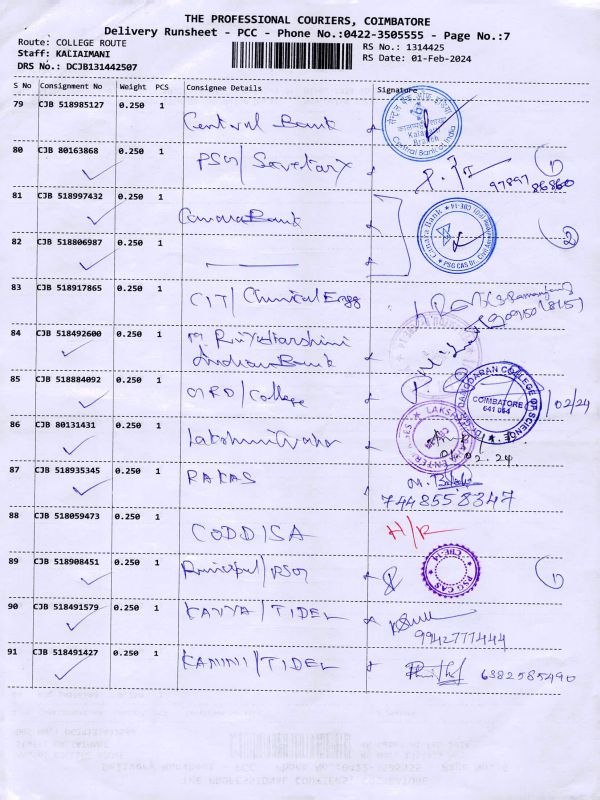 THE PROFESSIONAL COURIERS, COIMBATORE
Delivery Runsheet - PCC - Phone No.:0422-3505555 - Page No.:7
Route: COLLEGE ROUTE
RS No.: 1314425
Staff: KALIAIMANI
RS Date: 01-Feb-2024
DRS No.: DCJB131442507
S No Consignment No Weight PCS Consignee Details Signature
79 CJB 518985127 0.250 1 Central Bank
Central Bank of India
80 CJB 80163868 0.250 1 PSG/Secretary
97897 86860
1
81 CJB 518997432 0.250 1 Canara Bank
Canara Bank
2
82 CJB 518806987 0.250 1
83 CJB 518917865 0.250 1 CIT/Chemical Engg
84 CJB 518492600 0.250 1
Indian Bank
85 CJB 518884092 0.250 1 GRD/College
COIMBATORE
641 004
/02/24
86 CJB 80131431 0.250 1
01.02.24
87 CJB 518935345 0.250 1 RAKAS
7448558347
88 CJB 518059473 0.250 1 CODDISA H/R
89 CJB 518908451 0.250 1 Principal/PSG
PSG CAS
CBE-14
1
90 CJB 518491579 0.250 1 KANYA/TIDEL
9942777444
91 CJB 518491427 0.250 1 KAMINI/TIDEL 6382585490